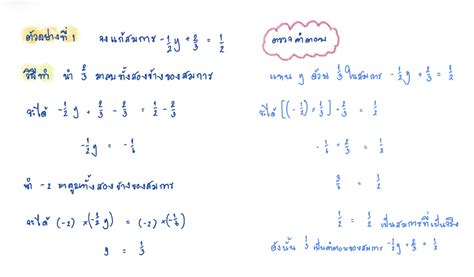 ตัวอย่างที่ 1 จงแก้สมการ -1/2 y + 2/3 = 1/2
วิธีทำ นำ 2/3 มาลบทั้งสองข้างของสมการ
จะได้ -1/2 y + 2/3 - 2/3 = 1/2 - 2/3
-1/2 y = -1/6
นำ -2 มาคูณทั้งสองข้างของสมการ
จะได้ (-2) × (-1/2 y) = (-2) × (-1/6)
y = 1/3
ตรวจคำตอบ
แทน y ด้วย 1/3 ในสมการ -1/2 y + 2/3 = 1/2
จะได้ [(-1/2) × 1/3] + 2/3 = 1/2
-1/6 + 2/3 = 1/2
3/6 = 1/2
1/2 = 1/2 เป็นสมการที่เป็นจริง
ดังนั้น 1/3 เป็นคำตอบของสมการ -1/2 y + 2/3 = 1/2